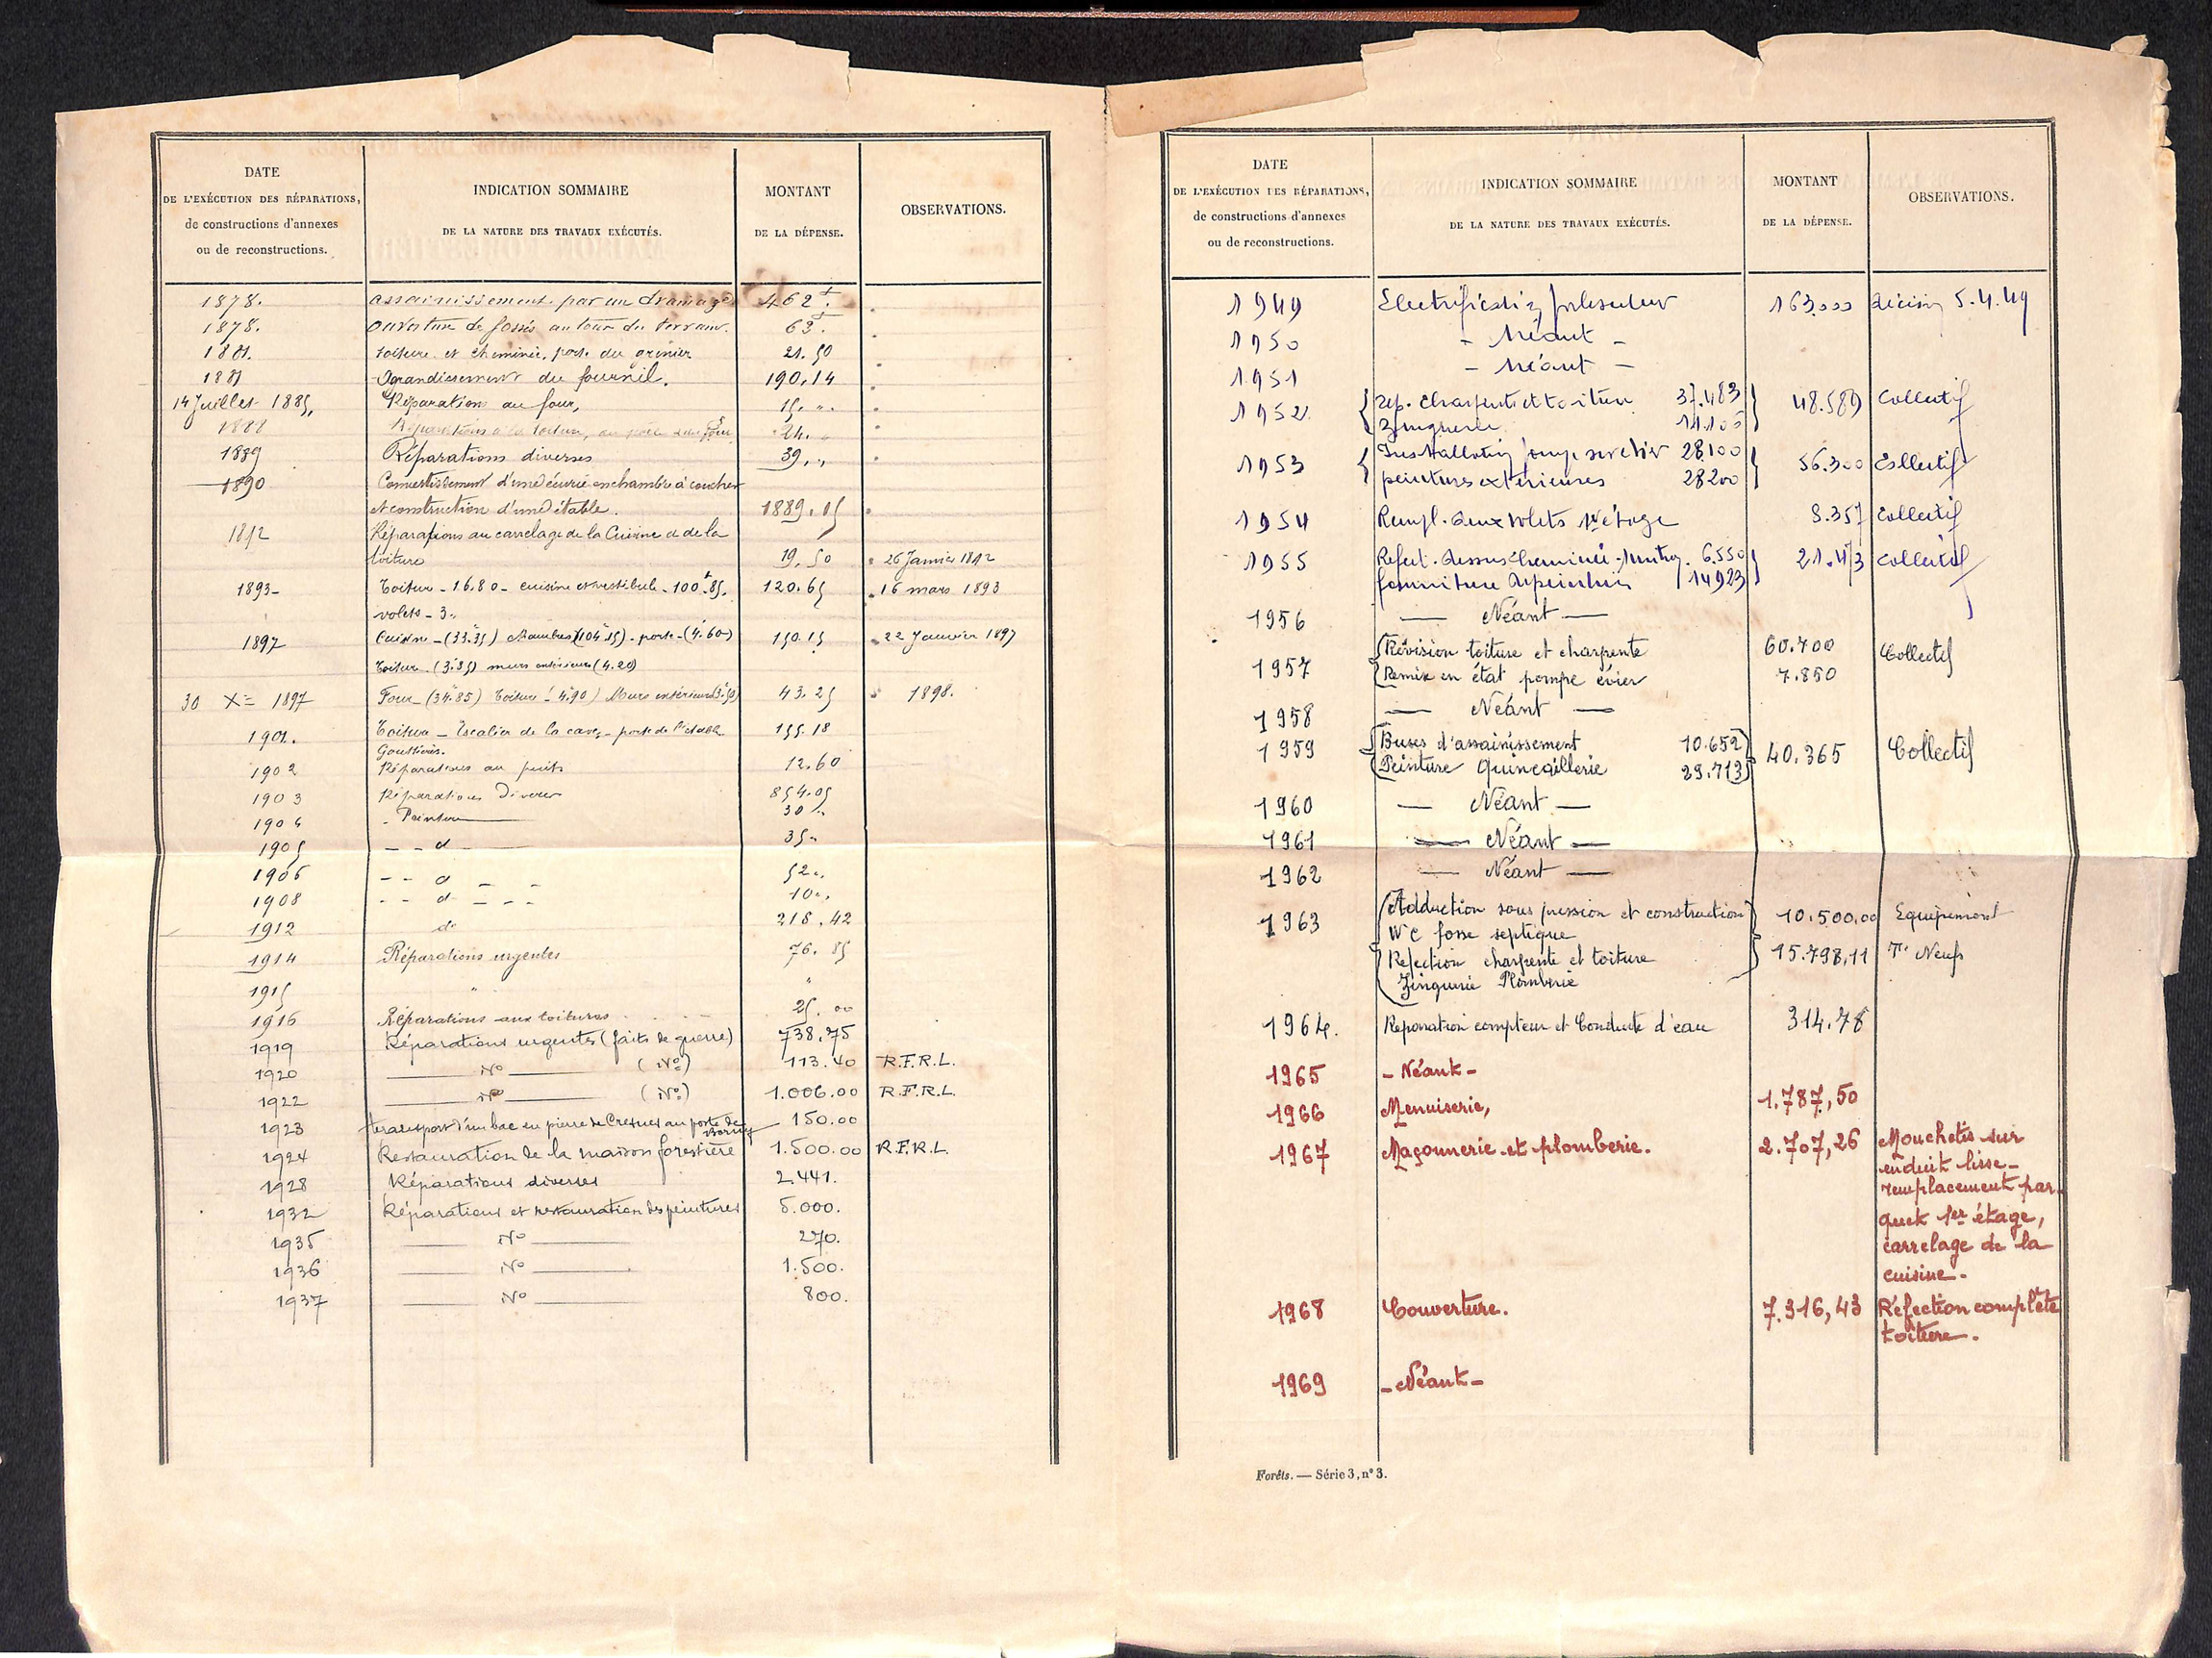 DATE
DE L'EXÉCUTION DES RÉPARATIONS,
de constructions d'annexes
ou de reconstructions.
INDICATION SOMMAIRE
DE LA NATURE DES TRAVAUX EXÉCUTÉS.
MONTANT
DE LA DÉPENSE.
OBSERVATIONS.
1878. assainissement par un drainage 462 f.
1878. ouverture de fossés autour du terrain. 63 f.
1881. toiture et cheminée, porte du grenier 21.50
1881 Agrandissement du fournil. 190,14
14 Juillet 1885, Réparation au four, 15. "
1888 Réparations à la toiture, 24. "
1889 Réparations diverses 39, "
1890 Convertissement d'une écurie en chambre à coucher
et construction d'une étable. 1889.05
1892 Réparations au carrelage de la Cuisine et de la
toiture 19.50 26 Janvier 1892
1893 - Toiture - 16.80 - cuisine et vestibule - 100f.85. 120.65 16 mars 1893
volets - 3 "
1897 Cuisine - (33.35) chambres (104.15) - porte - (4.60) 150.15 22 Janvier 1897
toiture (3.85) murs extérieurs (4.20)
30 Xe 1897 Four - (34.85) Toiture (4.90) Murs extérieurs (3.50) 43.25 1898.
1901. Toiture - Escalier de la cave, - porte de l'étable 155.18
Gouttières.
1902 Réparations au puits 12.60
1903 Réparations diverses 854.05
1904 - Peinture 30 "
1905 - - d 35 "
1906 - - d - - 52 "
1908 - - d - - - 10 "
1912 do 218,42
1914 Réparations urgentes 76.85
1915 " "
1916 Réparations aux toitures 25.00
1919 Réparations urgentes (faits de guerre) 738,75
1920 No (No) 113.40 R.F.R.L.
1922 No (No) 1.006.00 R.F.R.L.
1923 transport d'un bac en pierre de Cresnes au poste de 150.00
1924 Restauration de la maison forestière 1.500.00 R.F.R.L.
1928 Réparations diverses 2.441.
1932 Réparations et restauration des peintures 5.000.
1935 No 270.
1936 No 1.500.
1937 No 800.
DATE
DE L'EXÉCUTION DES RÉPARATIONS,
de constructions d'annexes
ou de reconstructions.
INDICATION SOMMAIRE
DE LA NATURE DES TRAVAUX EXÉCUTÉS.
MONTANT
DE LA DÉPENSE.
OBSERVATIONS.
1949 Electrification 163.000 décision 5.4.49
1950 - Néant -
1951 - Néant -
1952 rep. charpente et toiture 37.483 48.589 Collectif
Zinguerie
1953 Installation 28.100 56.300 Collectif
peintures extérieures 28200
1954 Rempl. deux volets 1er étage 8.357 Collectif
1955 Refect. dessus cheminée 6.550 21.473 Collectif
fourniture 14923
1956 - Néant -
1957 Révision toiture et charpente 60.700 Collectif
Remise en état pompe évier 7.850
1958 - Néant -
1959 Buses d'assainissement 10.652 40.365 Collectif
Peinture Quincaillerie 29.713
1960 - Néant -
1961 - Néant -
1962 - Néant -
1963 Adduction sous pression et construction 10.500,00 Equipement
WC fosse septique
Refection charpente et toiture 15.798,11 Tx Neufs
Zinguerie Plomberie
1964. Reparation compteur et Conduite d'eau 314.78
1965 - Néant -
1966 Menuiserie, 1.787,50
1967 Maçonnerie et plomberie. 2.707,26 Mouchetis sur
enduit lisse -
remplacement par-
quet 1er étage,
carrelage de la
cuisine -
1968 Couverture. 7.316,43 Réfection complète
toiture.
1969 - Néant -
Forêts. — Série 3, n° 3.